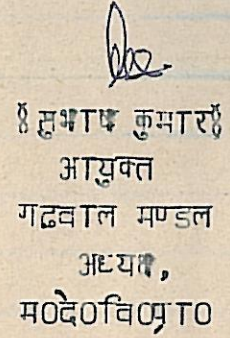 ४सुभाष कुमार४
आयुक्त
गढवाल मण्डल
अध्यक्ष,
म0दे0वि0प्रा0